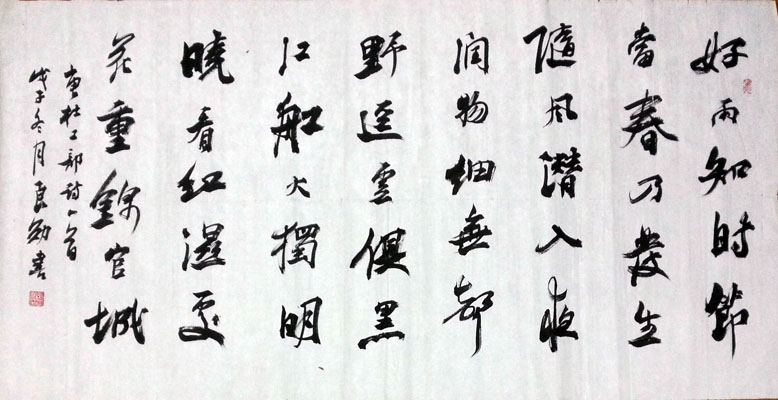 好雨知時節
當春乃發生
隨風潛入夜
润物细無聲
野逕雲俱黑
江船火獨明
曉看紅濕處
花重錦官城
唐杜工部诗一首
戊子冬月良書